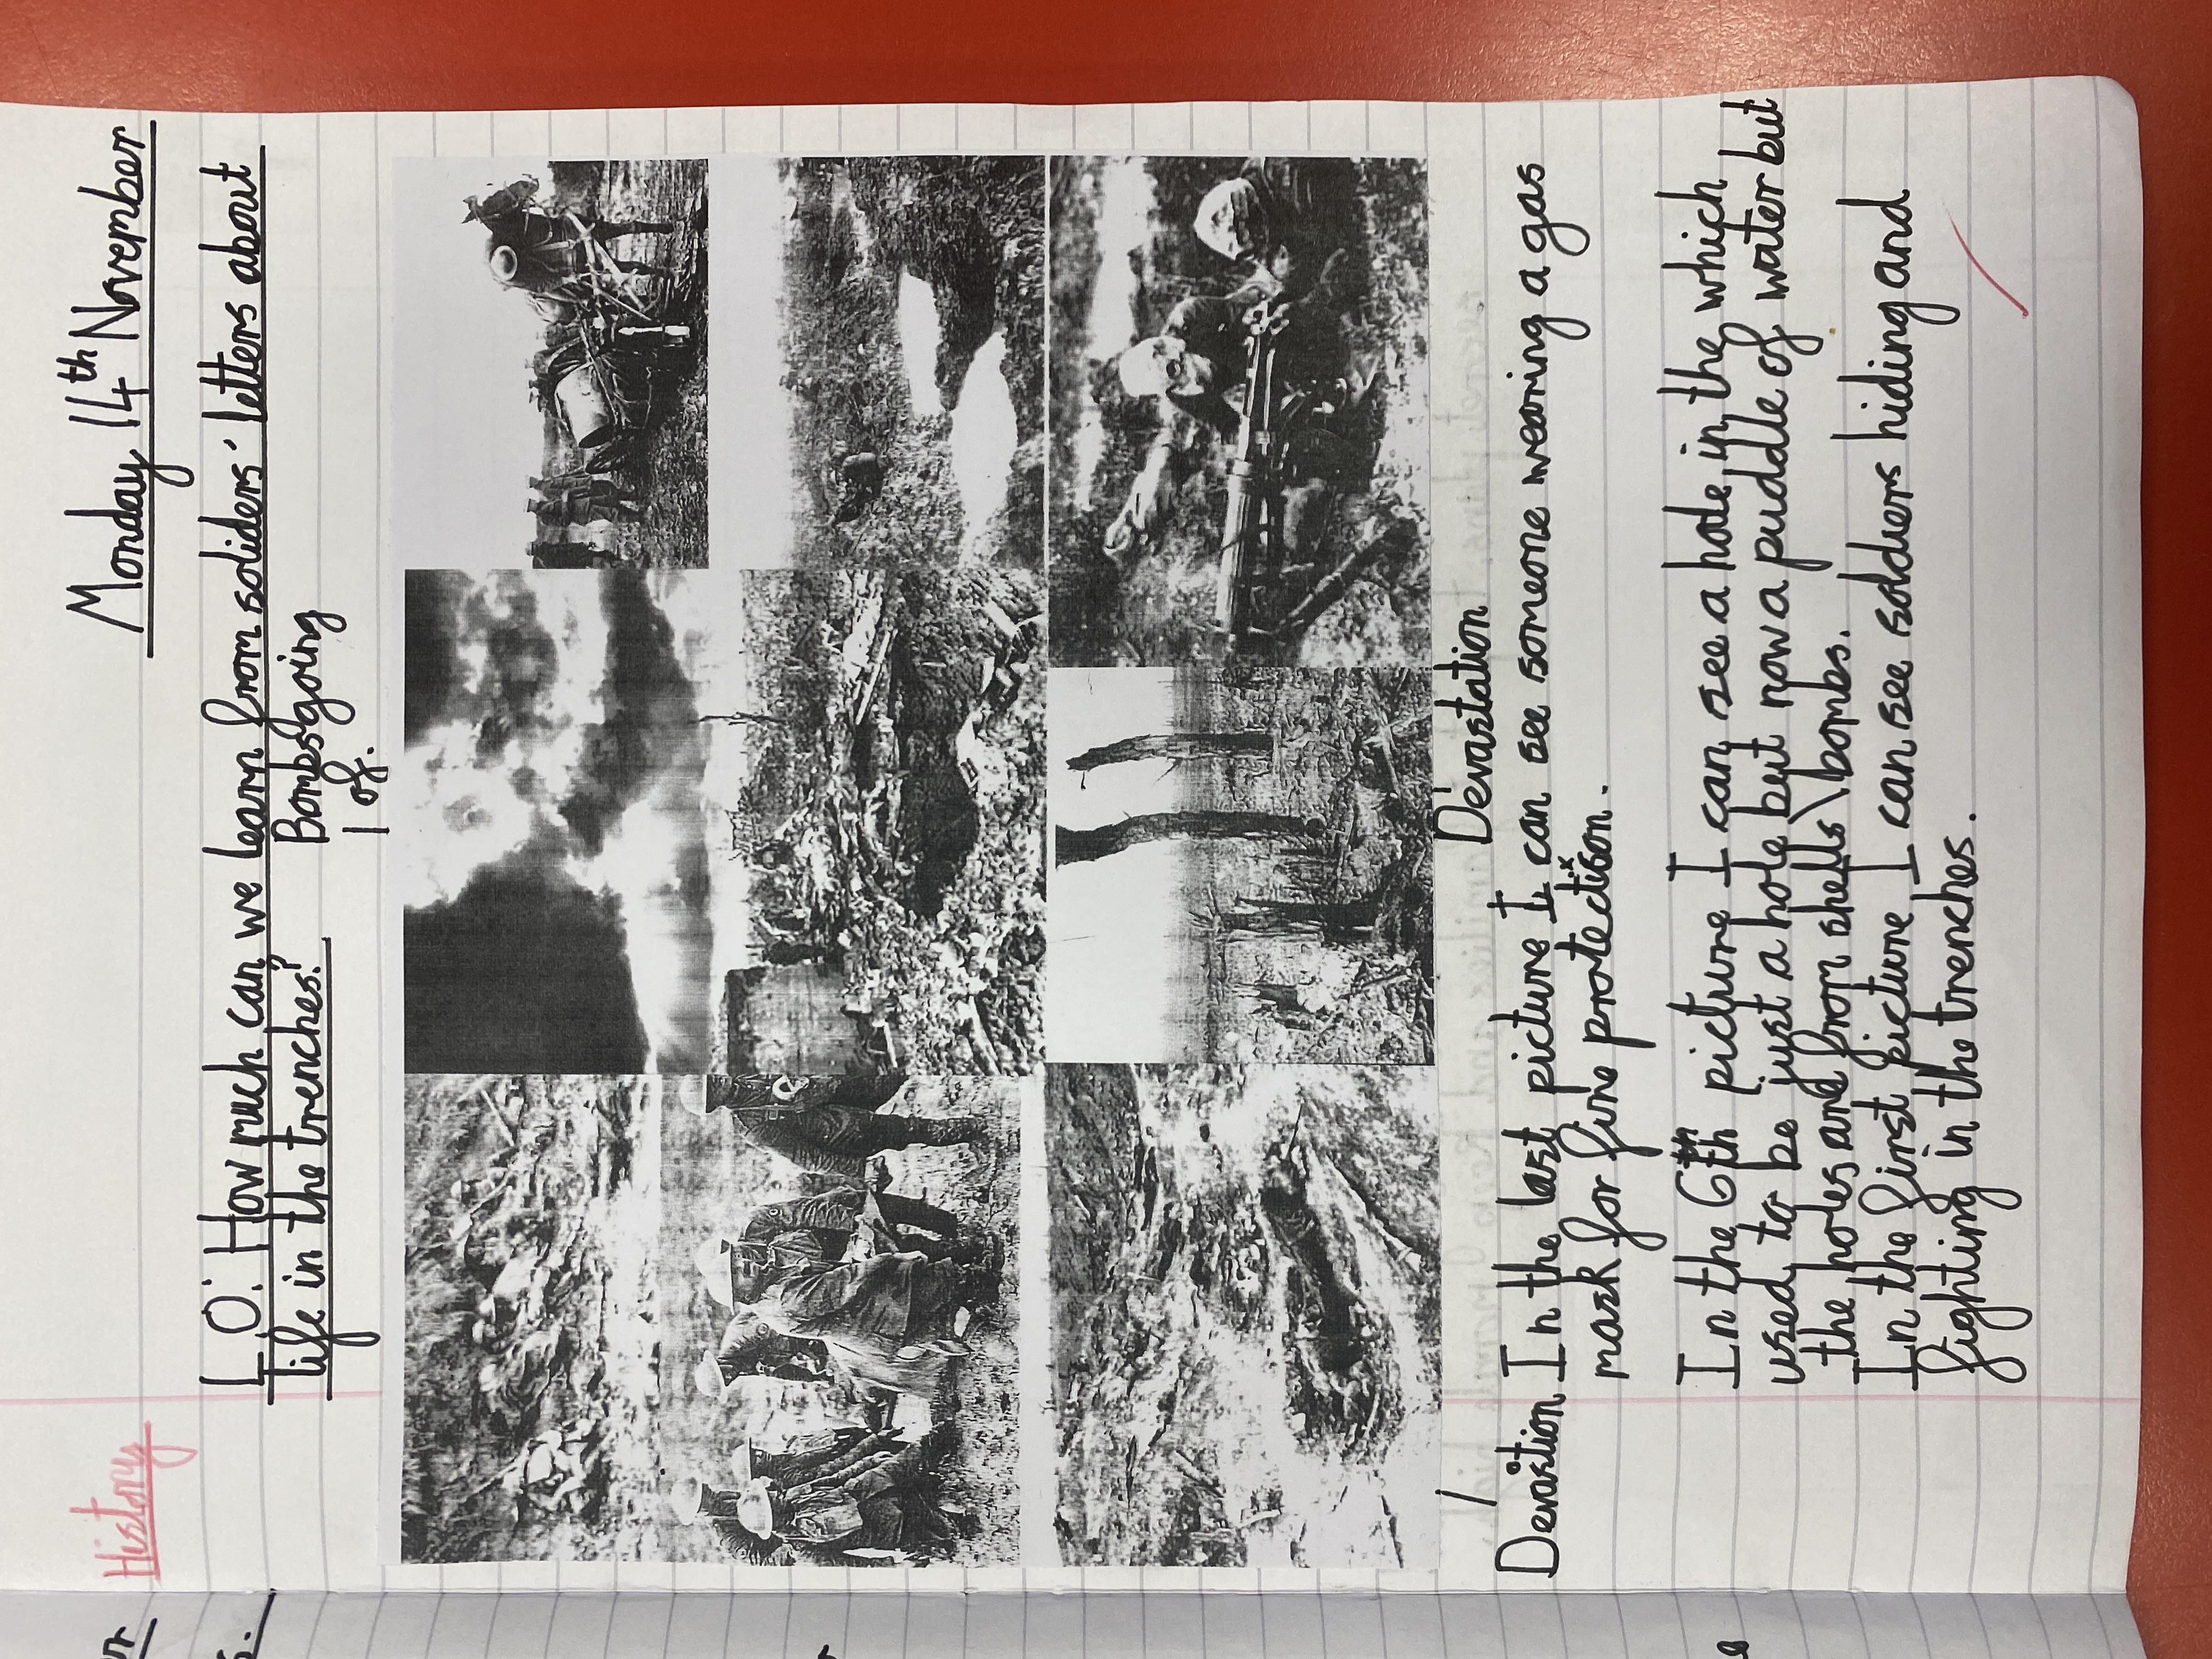 History
Monday 14th November
L.O: How much can we learn from soliders' letters about
life in the trenches?
Bombs going
of.
Devastation
Devastion In the last picture I can see someone wearing a gas
mask for fire protection.
In the 6th picture I can see a hole in the which
used to be just a hole but now a puddle of water but
the holes are from shells\bombs.
In the first picture I can see soldiers hiding and
fighting in the trenches.